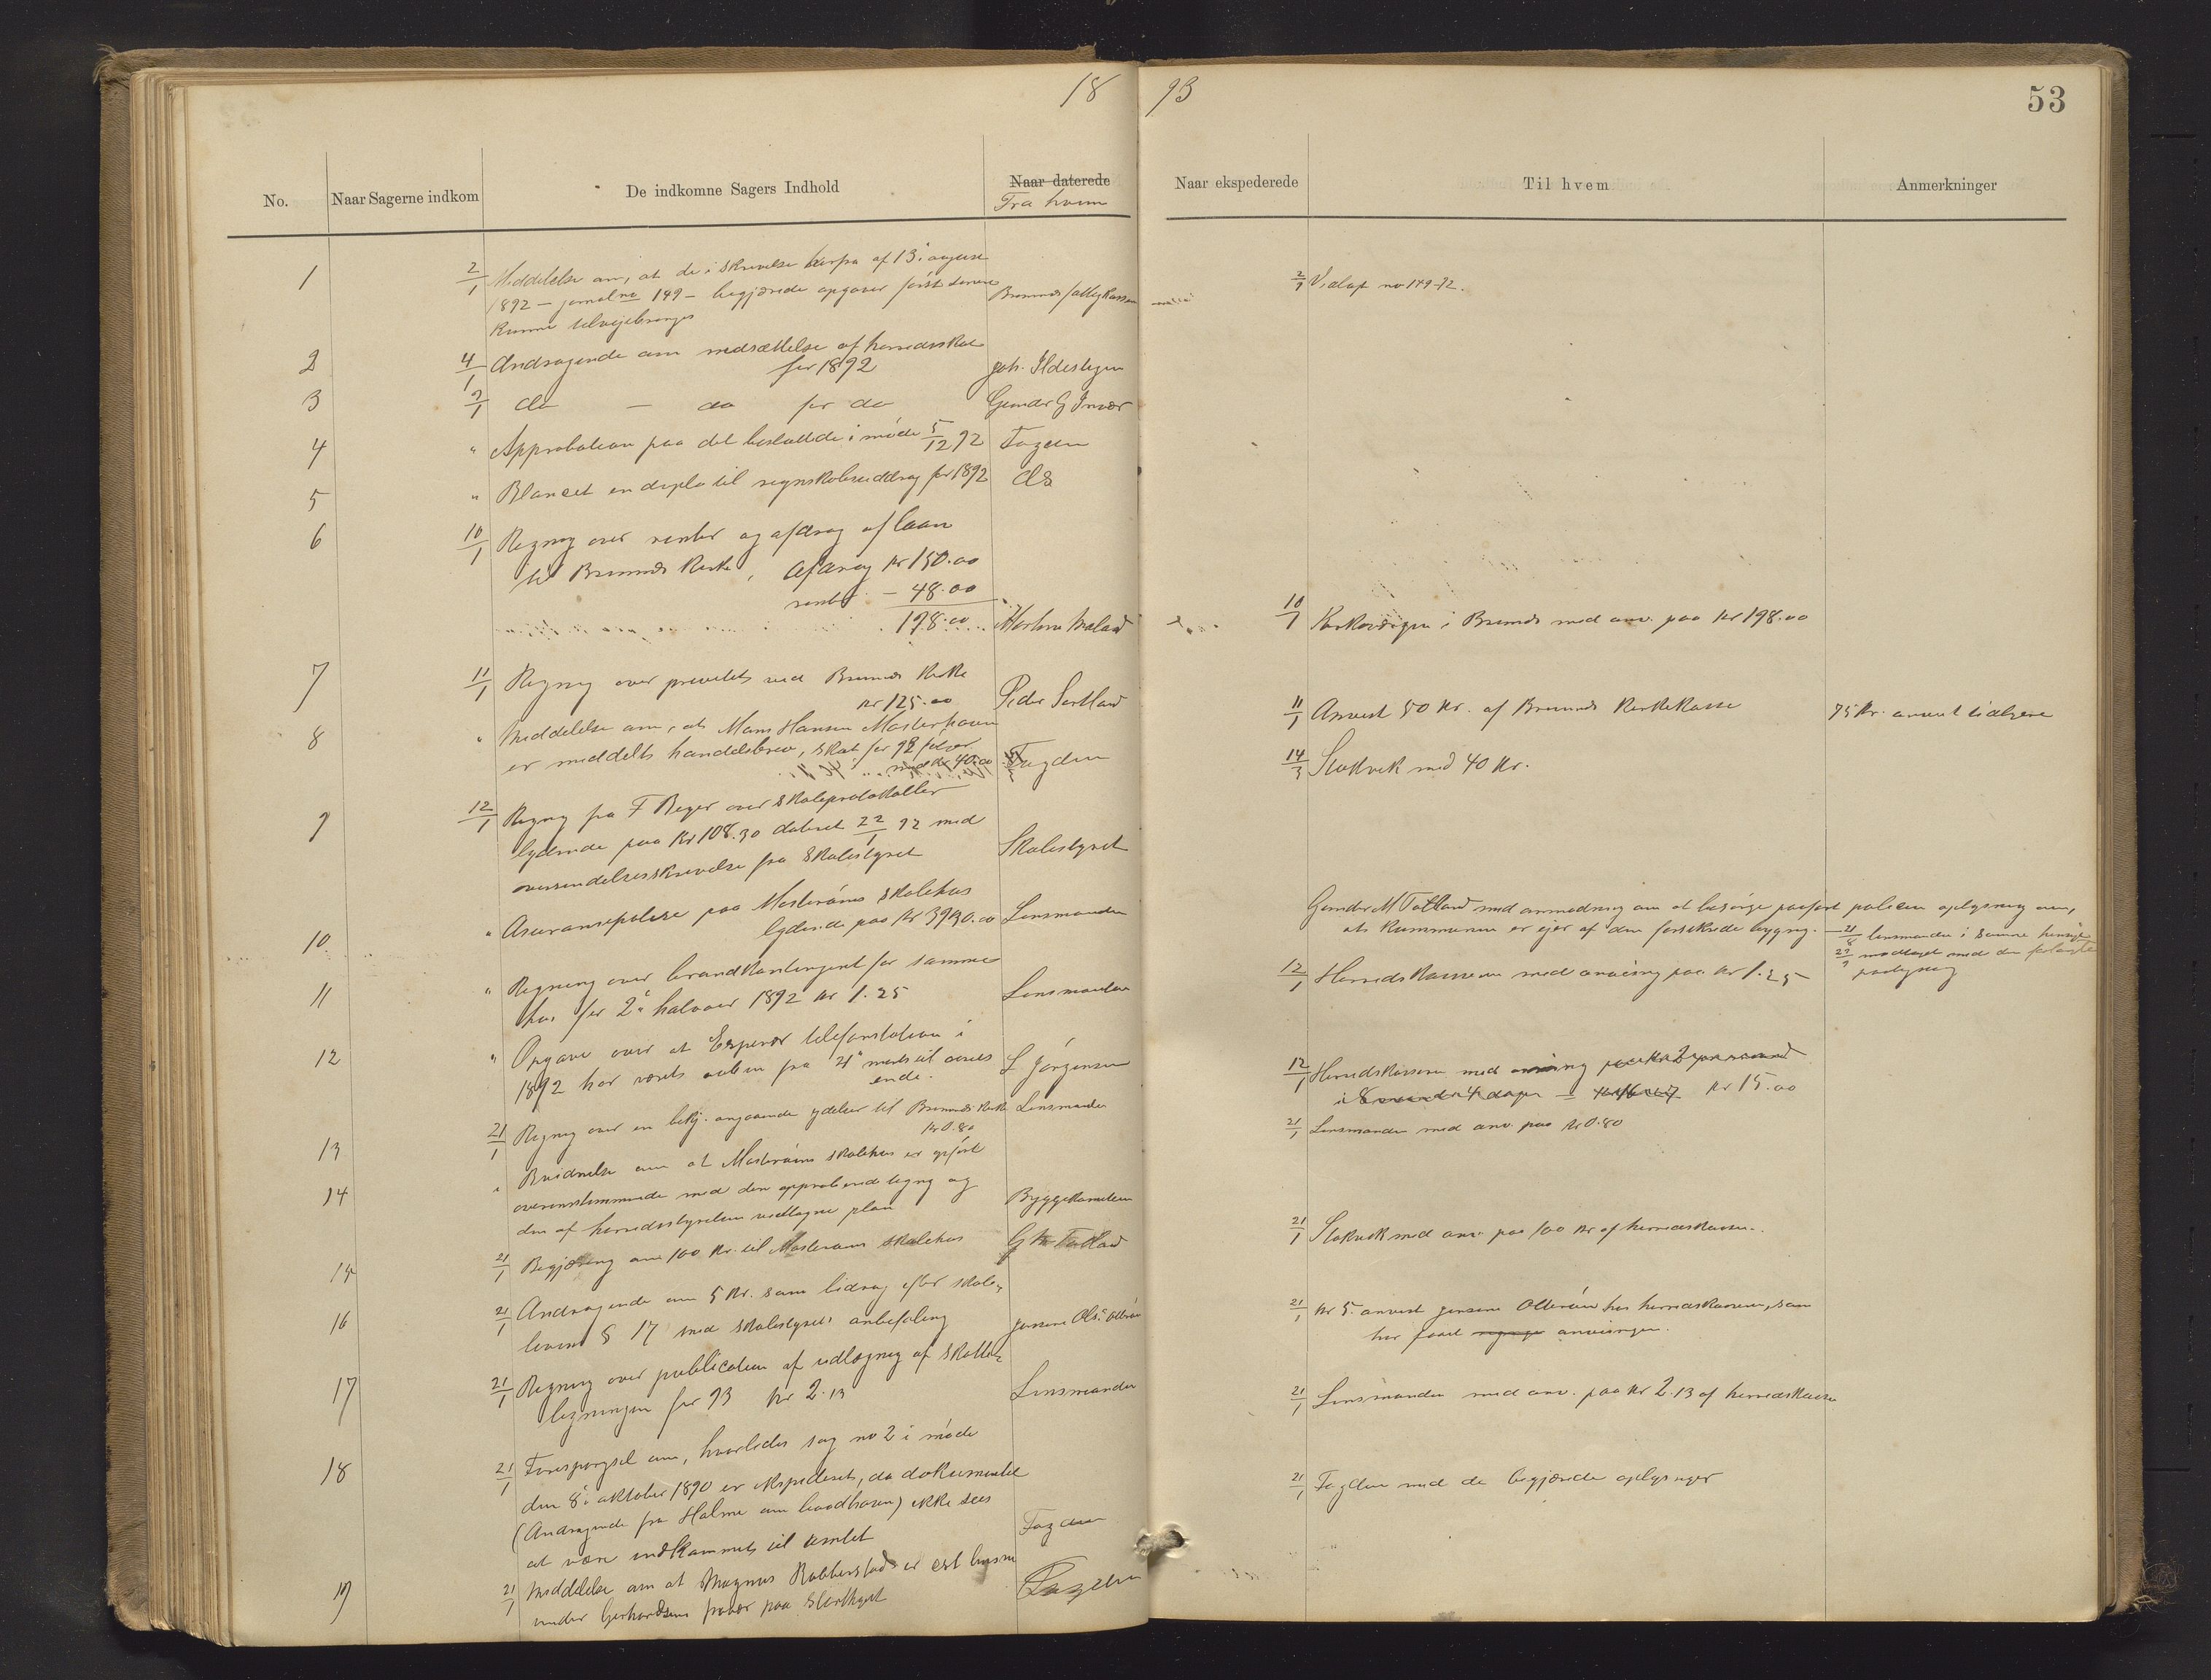 18 93
53
No.
Naar Sagerne indkom
De indkomne Sagers Indhold
Naar daterede
Fra hvem
Naar ekspederede
Til hvem
Anmerkninger
1 2/1 Meddelelse om, at de i skrivelse herfra af 13. august
1892 – jornal no 149 – begjærede opgaver først senere
kunne tilveiebringes
Bremnes fattigkasse
2/1 Vedlagt no 149-92.
2 4/1 Andragende om nedsættelse af herredsskat
for 1892
Joh.
3 9/1 do — do for do
Gunder G
4 " Approbation paa det besluttede i møde 5/12 92 Fogden
5 " Blanket en duplo til regnskabsuddrag for 1892 do
6 10/1 Regning over renter og afdrag af laan
til Bremnes kirke, Afdrag kr 150.00
renter – 48.00
198.00
10/1 Kirkeværgen i Bremnes med anv. paa kr 198.00
7 11/1 Regning over ved Bremnes kirke
kr 125.00
Peder
11/1 Anvist 50 kr. af Bremnes kirkekasse
75 kr. anvist tidligere
8 " Meddelelse om, at Mons Hansen Mosterhavn
er meddelt handelsbrev, skat for 92
med kr 40.00
Fogden
14/3 Stokvik med 40 kr.
9 12/1 Regning fra F Beyer over skoleprotokoller
lydende paa kr 108.30 dateret 22/1 92 med
oversendelsesskrivelse fra skolestyret
Skolestyret
10 " Assurancepolise paa Mosterøens skolehus
lydende paa kr 3930.00 Lensmanden
Gunder M Totland med anmodning om at besørge paaført polisen oplysning om,
at kommunen er ejer af den forsikrede bygning.
21/8 lensmanden i samme hensigt
27/9 modtaget med den forlangte
paategning
11 " Regning over brandkontingent for samme
hus for 2. halvaar 1892 kr 1.25
Lensmanden
12/1 Herredskassen med anvisning paa kr 1.25
12 " Opgave over at Espevær telefonstation i
1892 har været aaben fra 21. marts til aarets
ende.
L Jørgensen
12/1 Herredskassen med anvisning
kr 15.00
13 21/1 Regning over en bekj. angaaende ydelser til Bremnes kirke
kr 0.80
Lensmanden
21/1 Lensmanden med anv. paa kr 0.80
14 " Bevidnelse om at Mosterøens skolehus er opført
overensstemmende med den approberede tegning og
den af herredsstyrelsen vedtagne plan
Byggekomiteen
15 21/1 Begjæring om 100 kr. til Mosterøens skolehus
G M Totland
21/1 Stokvik med anv. paa 100 kr af herredskassen.
16 21/1 Andragende om 5 kr. som bidrag efter skole-
loven § 17 med skolestyrets anbefaling
21/1 kr 5. anvist hos herredskassen, som
har faaet anvisningen.
17 21/1 Regning over publication af udlægning af skatte-
ligningen for 93 kr 2.13
Lensmanden
21/1 Lensmanden med anv. paa kr 2.13 af herredskassen
18 21/1 Forespørgsel om, hvorledes sag no 2 i møde
den 8. oktober 1890 er ekspederet, da dokumentet
(Andragende fra Holme om baadhavn) ikke sees
at være indkommet til amtet
Fogden
21/1 Fogden med de begjærede oplysninger
19 21/1 Meddelelse om at Magnus
under prøver paa
Fogden